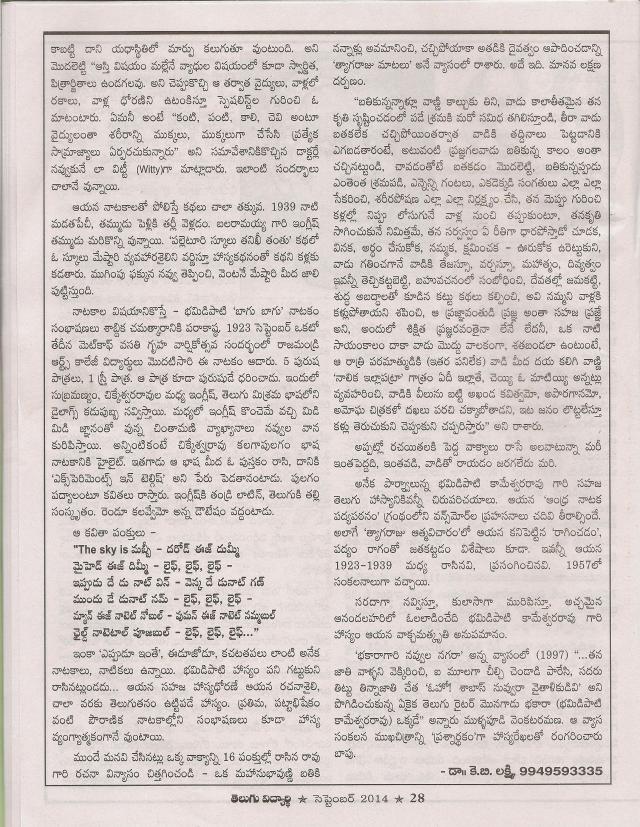 కాబట్టి దాని యధాస్థితిలో మార్పు కలుగుతూ వుంటుంది. అని
మొదలెట్టి "ఆస్తి విషయం మల్లేనే వ్యాధుల విషయంలో కూడా స్వార్జిత,
పిత్రార్జితాలు ఉండగలవు. అని చెప్పుకొచ్చి ఆ తర్వాత వైద్యులు, వాళ్లలో
రకాలు, వాళ్ల ధోరణిని ఉటంకిస్తూ స్పెషలిస్ట్‌ల గురించి ఓ
మాటంటారు. ఏమనీ అంటే "కంటి, పంటి, కాలి, చెవి అంటూ
వైద్యులంతా శరీరాన్ని ముక్కలు, ముక్కలుగా చేసేసి ప్రత్యేక
సామ్రాజ్యాలు ఏర్పరచుకున్నారు" అని సమావేశానికొచ్చిన డాక్టర్లే
నవ్వుకునే లా విట్టీ (Witty)గా మాట్లాడారు. ఇలాంటి సందర్భాలు
చాలానే వున్నాయి.
ఆయన నాటకాలతో పోలిస్తే కథలు చాలా తక్కువ. 1939 నాటి
మడతపేచీ, తమ్ముడు పెళ్లికి తర్లి వెళ్లడం. బలరామయ్య గారి ఇంగ్లీష్
తమ్ముడు మరికొన్ని వున్నాయి. 'పల్లెటూరి స్కూలు తనిఖీ తంతు' కథలో
ఓ స్కూలు మేష్టారి వ్యవహారశైలిని వర్ణిస్తూ హాస్యకథనంతో కథని కళ్లకు
కడతారు. ముగింపు ఫక్కున నవ్వు తెప్పించి, వెంటనే మేష్టారి మీద జాలి
పుట్టిస్తుంది.
నాటకాల విషయానికొస్తే - భమిడిపాటి 'బాగు బాగు' నాటకం
సంభాషణలు శాబ్దిక చమత్కారానికి పరాకాష్ఠ. 1923 సెప్టెంబర్ ఒకటో
తేదీన మెట్‌కాఫ్ వసతి గృహ వార్షికోత్సవ సందర్భంలో రాజమండ్రి
ఆర్ట్స్ కాలేజీ విద్యార్థులు మొదటిసారి ఈ నాటకం ఆడారు. 5 పురుష
పాత్రలు, 1 స్త్రీ పాత్ర. ఆ పాత్ర కూడా పురుషుడే ధరించాడు. ఇందులో
సుబ్రమణ్యం, చిక్కేశ్వరరావుల మధ్య ఇంగ్లీష్, తెలుగు మిశ్రమ భాషలోని
డైలాగ్స్ కడుపుబ్బ నవ్విస్తాయి. మధ్యలో ఇంగ్లీష్ కొంచెమే వచ్చి మిడి
మిడి జ్ఞానంతో వున్న చింతామణి వ్యాఖ్యానాలు నవ్వుల వాన
కురిపిస్తాయి. అన్నింటికంటే చిక్కేశ్వరావు కలగాపులగం భాష
నాటకానికి హైలైట్. ఇతగాడు ఆ భాష మీద ఓ పుస్తకం రాసి, దానికి
'ఎక్స్‌పెరిమెంట్స్ ఇన్ టెల్లిష్' అని పేరు పెడతానంటాడు. పులగం
పద్యాలంటూ కవితలు రాస్తారు. ఇంగ్లీష్‌కి తండ్రి లాటిన్, తెలుగుకి తల్లి
సంస్కృతం. రెండూ కలవ్వేమో అన్న డౌటేషం వద్దంటాడు.
ఆ కవితా పంక్తులు -
"The sky is మబ్బీ - దరోడ్ ఈజ్ దుమ్మీ
మైహెడ్ ఈజ్ దిమ్మీ - లైఫ్, లైఫ్, లైఫ్ -
ఇప్పుడు దే డు నాట్ విన్ - వెన్క దే డునాట్ గణ్
ముందు దే డునాట్ నమ్ - లైఫ్, లైఫ్, లైఫ్ -
మ్యాన్ ఈజ్ నాటెట్ నోబుల్ - వుమన్ ఈజ్ నాటెట్ నమ్మబుల్
ఛైల్డ్ నాటెటాల్ పూజబుల్ - లైఫ్, లైఫ్, లైఫ్..."
ఇంకా 'ఎప్పుడూ ఇంతే', ఈడూజోడూ, కచటతపలు లాంటి అనేక
నాటకాలు, నాటికలు ఉన్నాయి. భమిడిపాటి హాస్యం పని గట్టుకుని
రాసినట్లుండదు... ఆయన సహజ హాస్యధోరణే ఆయన రచనాశైలి,
చాలా వరకు తెలుగుతనం ఉట్టిపడే హాస్యం. ప్రతిమ, పట్టాభిషేకం
వంటి పౌరాణిక నాటకాల్లోని సంభాషణలు కూడా హాస్య
వ్యంగ్యాత్మకంగానే వుంటాయి.
ముందే మనవి చేసినట్లు ఒక్క వాక్యాన్ని 16 పంక్తుల్లో రాసిన రావు
గారి రచనా విన్యాసం చిత్తగించండి - ఒక మహానుభావుణ్ణి బతికి
నన్నాళ్లు అవమానించి, చచ్చిపోయాకా అతడికి దైవత్వం ఆపాదించడాన్ని
'త్యాగరాజు మాటలు' అనే వ్యాసంలో రాశారు. అదే ఇది. మానవ లక్షణ
దర్పణం.
"బతికున్నన్నాళ్లూ వాణ్ణి కాల్చుకు తిని, వాడు కాలాతీతమైన తన
కృతి సృష్టించడంలో పడే శ్రమకి మరో సమిధ తగిలిస్తూండి, తీరా వాడు
బతకలేక చచ్చిపోయింతర్వాత వాడికి తద్దినాలు పెట్టడానికి
ఎగబడతారంటే, అటువంటి ప్రజ్ఞగలవాడు బతుకున్న కాలం అంతా
చచ్చినట్టుండి, చావడంతోటే బతకడం మొదలెట్టి, బతికున్నప్పుడు
ఎంతెంత శ్రమపడి, ఎన్నెన్ని గంటలు, ఎకడెక్కడి సంగతులు ఎల్లా ఎల్లా
సేకరించి, శరీరపోషణ ఎల్లా ఎల్లా నిర్లక్ష్యం.చేసి, తన మెప్పు గురించి
కళ్లల్లో నిప్పు లోసుగునే వాళ్ల నుంచి తప్పుకుంటూ, తనకృతి
సాగించుకునే నిమిత్తమే, తన సర్వస్వం ఏ రీతిగా ధారపోస్తాడో చూడక,
వినక, అర్థం చేసుకోక, నమ్మక, క్షమించక - ఊరుకోక ఉరెట్టుకుని,
వాడు గతించగానే వాడికి తేజస్సూ, వర్చస్సూ, మహాత్మం, దివ్యత్వం
ఇవన్నీ తెచ్చికట్టబెట్టి, బహువచనంలో సంబోధించి, దేవతల్లో జమకట్టి,
శుద్ధ అబద్ధాలతో కూడిన కట్టు కథలు కల్పించి, అవి నమ్మని వాళ్లకి
కళ్లుపోతాయని శపించి, ఆ ప్రజ్ఞావంతుడి ప్రజ్ఞ అంతా సహజ ప్రజ్ఞే
అని, అందులో శిక్షిత ప్రజ్ఞరవంతైనా లేనే లేదనీ, ఒక నాటి
సాయంకాలం దాకా వాడు మొద్దు వాలకంగా, శతబండలా ఉంటుంటే,
ఆ రాత్రి పరమాత్ముడికి (ఇతర పనిలేక) వాడి మీద దయ కలిగి వాణ్ణి
'నాలిక ఇల్లాపట్రా' గాత్రం ఏదీ ఇల్లాతే, చెయ్యి ఓ మాటియ్యి అన్నట్లు
వ్యవహరించి, వాడికి వీలును బట్టి అఖండ కవిత్వమో, అపారగానమో,
అమోఘ చిత్రకళో దఖలు పరచి చక్కాబోతాడని, ఇట జనం లొట్టలేస్తూ
కళ్లు తెరుచుకుని చెప్పుకుని చప్పరిస్తారు" అని రాశారు.
అప్పట్లో రచయితలకి పెద్ద వాక్యాలు రాసే అలవాటున్నా మరీ
ఇంతపెద్దది, ఇంతవడి, వాడితో రాయడం జరగలేదు మరి.
అనేక పార్శ్వాలున్న భమిడిపాటి కామేశ్వరరావు గారి సహజ
తెలుగు హాస్యానికివన్నీ చిరుపరిచయాలు. ఆయన 'ఆంధ్ర నాటక
పద్యపఠనం' గ్రంథంలోని వన్స్‌మోర్‌ల ప్రహసనాలు చదివి తీరాల్సిందే.
అలాగే 'త్యాగరాజు ఆత్మవిచారం'లో ఆయన కనిపెట్టిన 'రాగించడం',
పద్యం రాగంతో జతకట్టడం విశేషాలు కూడా. ఇవన్నీ ఆయన
1923-1939 మధ్య రాసినవి, ప్రసంగించినవి. 1957లో
సంకలనాలుగా వచ్చాయి.
సరదాగా నవ్విస్తూ, కులాసాగా మురిపిస్తూ, అచ్చమైన
ఆనందలహరిలో ఓలలాడించేది భమిడిపాటి కామేశ్వరరావు గారి
హాస్యం ఆయన వాక్చమత్కృతి అనుపమానం.
'భకారాగారి నవ్వుల నగరా' అన్న వ్యాసంలో (1997) "...తన
జాతి వాళ్ళని వెక్కిరించి, ఐ మూలగా చీల్చి చెండాడి పారేసి, సదరు
తిట్లు తిన్నాజాతి చేత 'ఓహో! శాబాస్ నువ్వురా వైతాళికుడివి' అని
పొగిడించుకున్న ఏకైక తెలుగు రైటర్ మొనగాడు భకారా (భమిడిపాటి
కామేశ్వరరావు) ఒక్కడే" అన్నారు ముళ్లపూడి వెంకటరమణ. ఆ వ్యాస
సంకలన ముఖచిత్రాన్ని 'ప్రశ్నార్థకం'గా హాస్యరేఖలతో రంగరించారు
బాపు.
- డా॥ కె.బి. లక్ష్మి, 9949593335
తెలుగు విద్యార్థి ★ సెప్టెంబర్ 2014 ★ 28